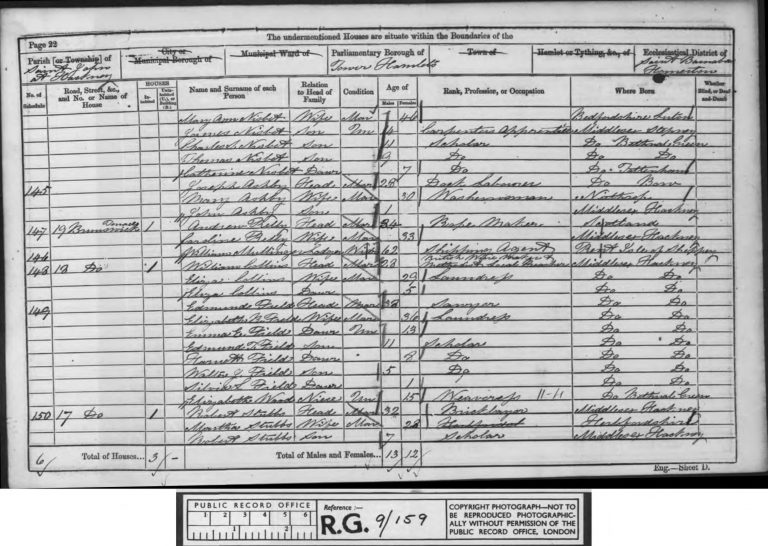 The undermentioned Houses are situate within the Boundaries of the
Page 22
Parish [or Township] of
St John
Hackney
City or
Municipal Borough of
Municipal Ward of
Parliamentary Borough of
Tower Hamlets
Town of
Hamlet or Tything, &c., of
Ecclesiastical District of
Saint Barnabas
Homerton
No. of Schedule
Road, Street, &c., and No. or Name of House
HOUSES
Inhabited
Uninhabited (U.), or Building (B.)
Name and Surname of each Person
Relation to Head of Family
Condition
Age of
Males
Females
Rank, Profession, or Occupation
Where Born
Whether Blind, or Deaf-and-Dumb
Mary Ann Nisbet Wife Mar 44 Bedfordshire Luton
James Nisbet Son Un 14 Carpenters Apprentice Middlesex Stepney
Charles Nisbet Son 11 Scholar Do Bethnal Green
Thomas Nisbet Son 9 Do Do Do
Catherine Nisbet Daur 7 Do Do Tottenham
145 Joseph Ashby Head Mar 28 Dock Labourer Do Bow
Mary Ashby Wife Mar 30 Washerwoman
John Ashby Son 1 Middlesex Hackney
147 19 Brunswick 1 Andrew Head Mar 34 Rope Maker Scotland
Caroline Wife Mar 33 Middlesex Hackney
William 62 Shipping Agent Kent Isle of Sheppey
148 18 Do 1 William Collins Head Mar 28 Middlesex Hackney
Eliza Collins Wife Mar 29 Laundress Do Do
Eliza Collins Daur 5 Do Do
149 Edmund Field Head Mar 38 Sawyer Do Do
Elizabeth Field Wife Mar 36 Laundress Do Do
Emma E Field Daur Un 13 Do Do
Edmund T Field Son 11 Scholar Do Do
Harriett Field Daur 8 Do Do Do
Walter J Field Son 5 Do Do Do
Silvia L Field Daur 1 Do Do
Elizabeth Ward Niece Un 15 Weaveress 11-11 Do Bethnal Green
150 17 Do 1 Robert Stubbs Head Mar 32 Bricklayer Middlesex Hackney
Martha Stubbs Wife Mar 28 Hertfordshire
Robert Stubbs Son 7 Scholar Middlesex Hackney
6 Total of Houses... 3 - Total of Males and Females... 13 12
Eng.—Sheet D.
PUBLIC RECORD OFFICE
1 2 3 4 5 6
1 2
Reference:-
R.G. 9/159
COPYRIGHT PHOTOGRAPH—NOT TO
BE REPRODUCED PHOTOGRAPHIC-
ALLY WITHOUT PERMISSION OF THE
PUBLIC RECORD OFFICE, LONDON